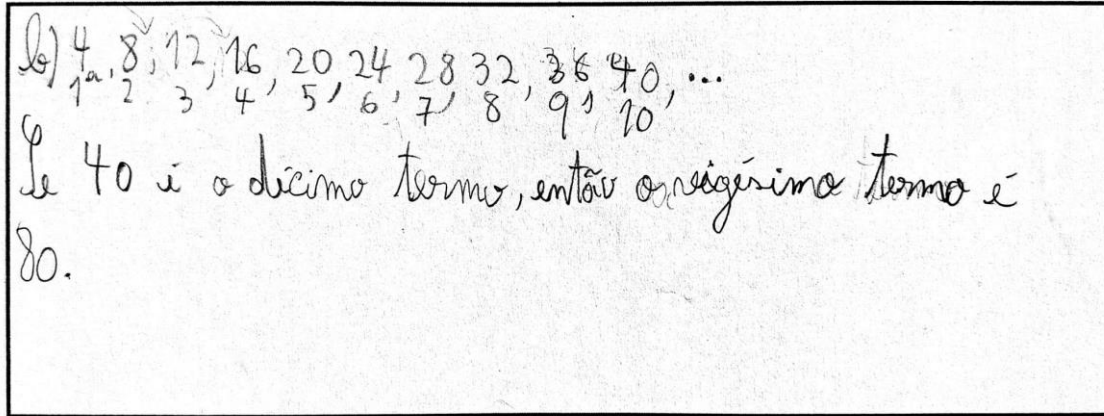 b) 4, 8, 12, 16, 20, 24, 28, 32, 36, 40, ...
1º 2 3 4 5 6 7 8 9 10
Se 40 é o décimo termo, então o vigésimo termo é
80.